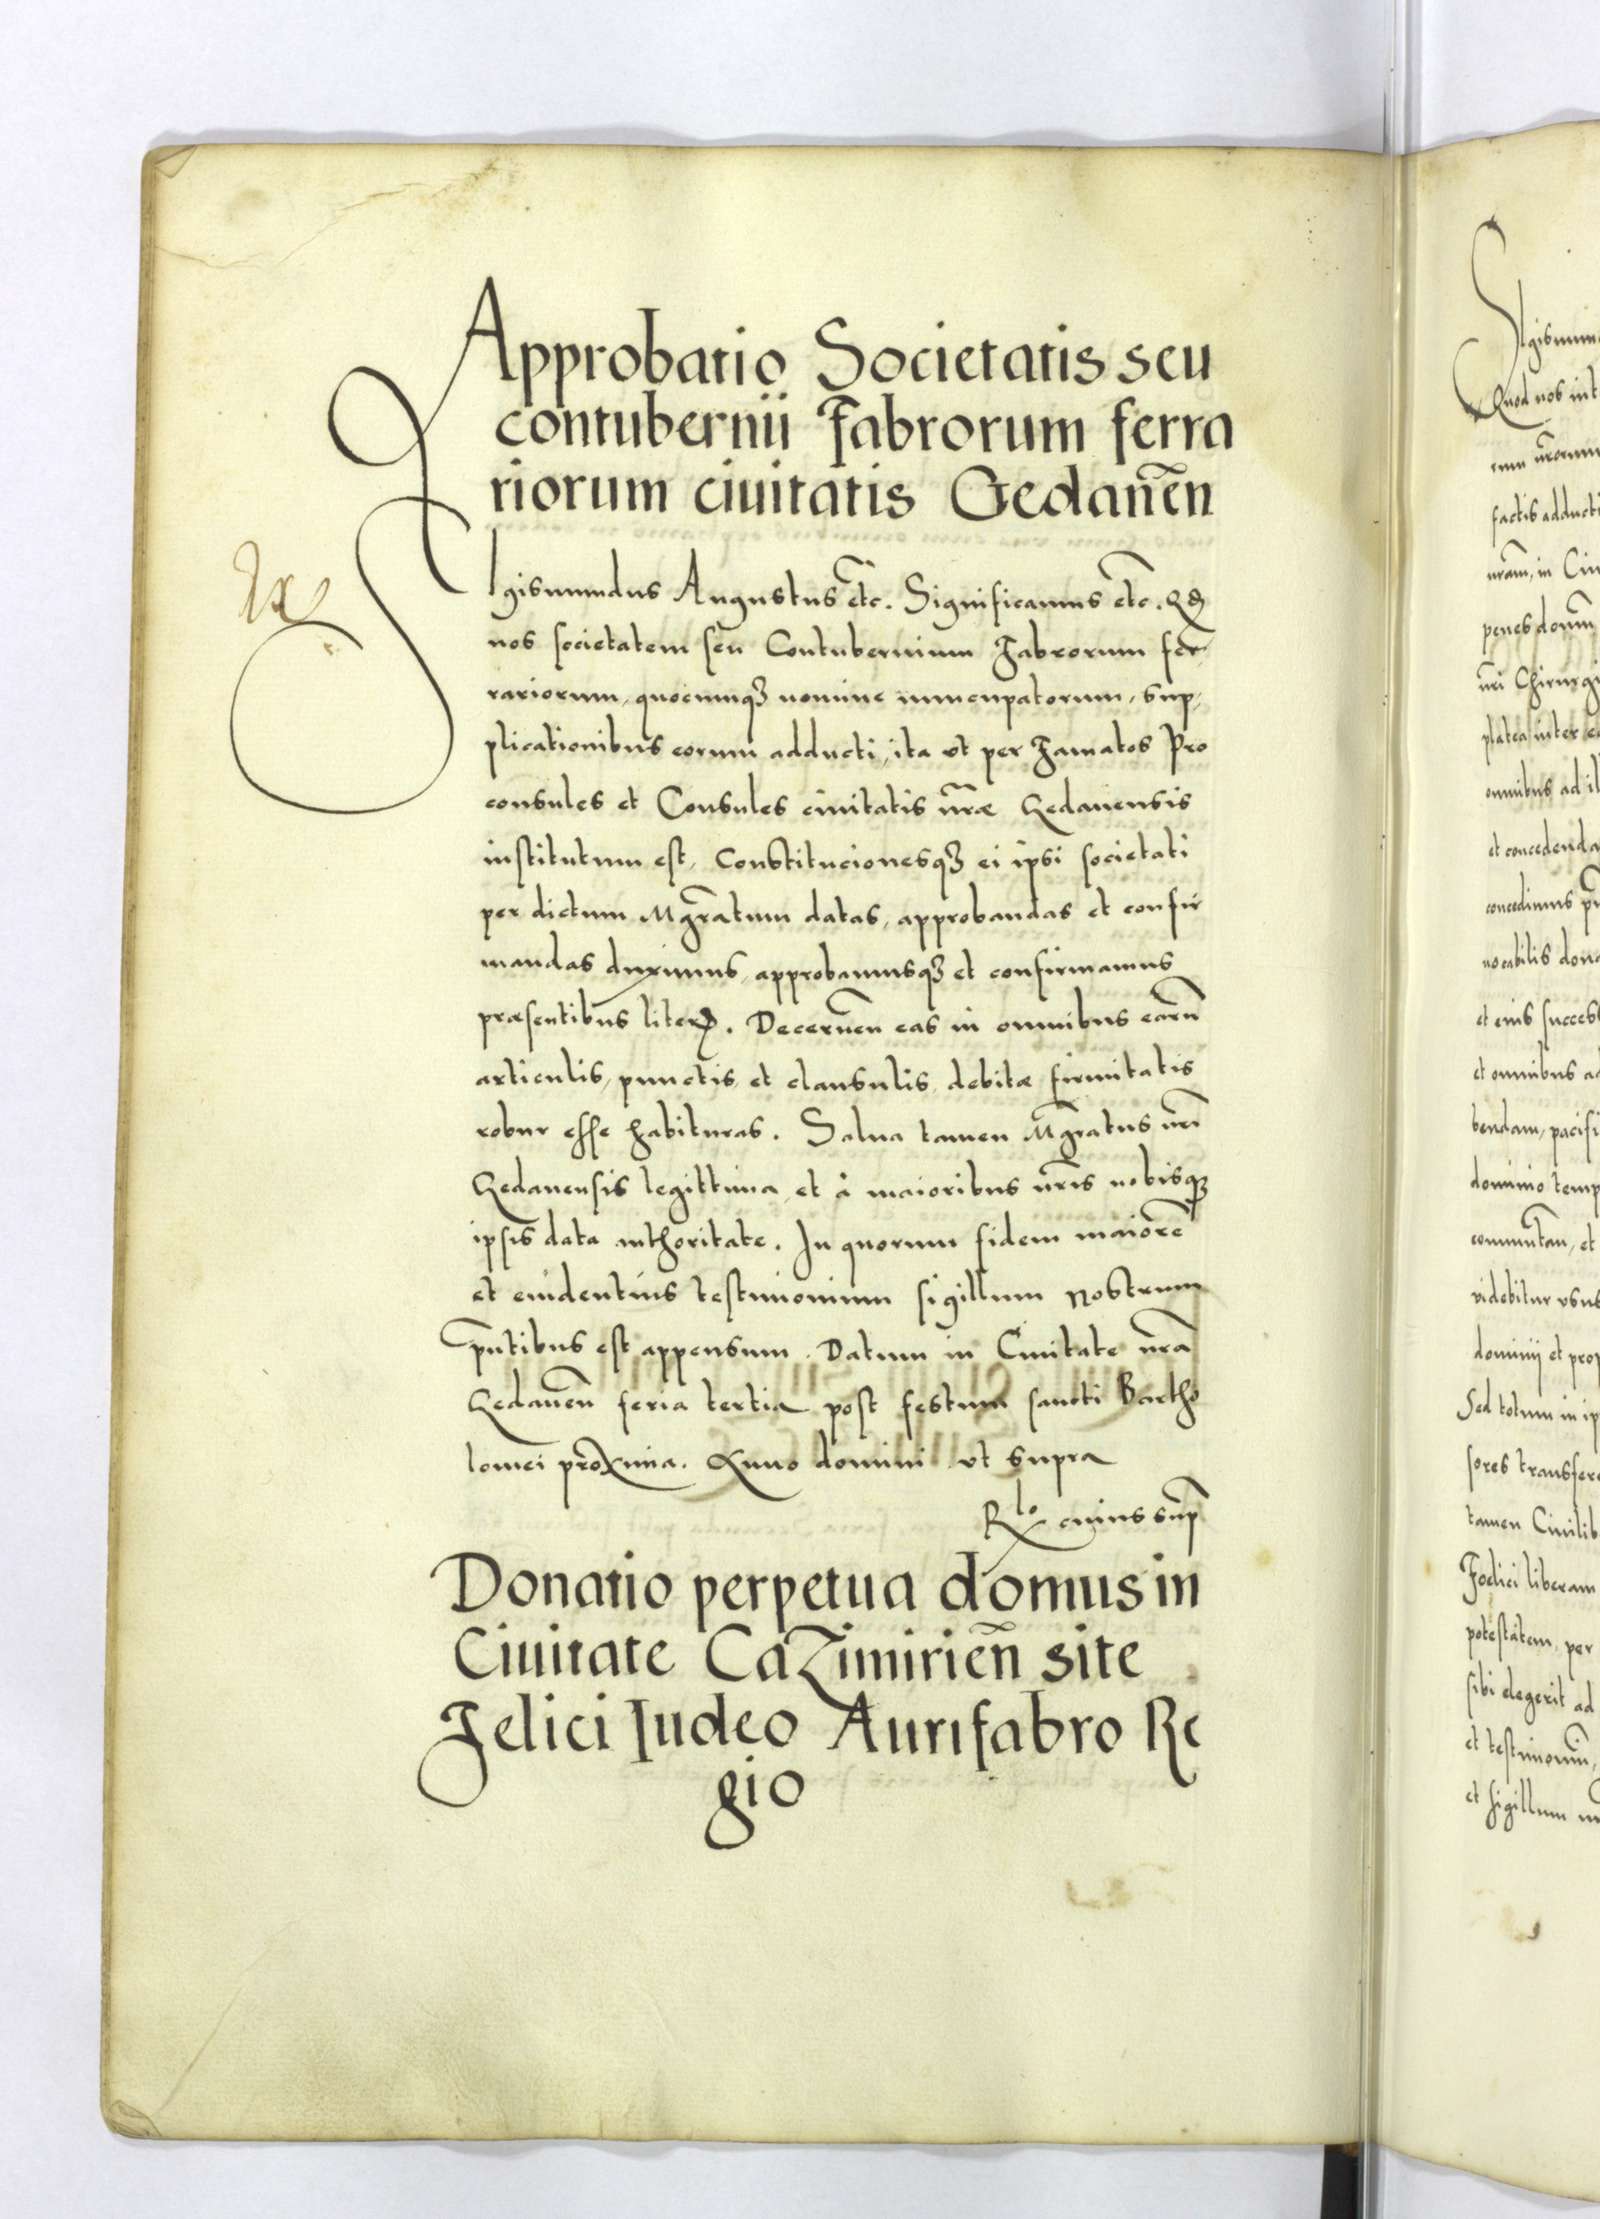 Approbatio Societatis seu
contubernii Fabrorum ferra
riorum ciuitatis Gedaneñ
Sigismundus Augustus etc. Significamus etc. Qd
nos societatem seu Contubernium Fabrorum fer
rariorum, quocumqꝫ nomine nuncupatorum, sup,
plicationibus eorum adducti, ita vt per Famatos Pro
consules et Consules ciuitatis nr̃æ Gedanensis
institutum est, Constitucionesqꝫ ei ipsi societati
per dictum Mgr̃atum datas, approbandas et confir
mandas duximus, approbamusqꝫ et confirmamus
præsentibus literꝭ. Decerneñ eas in omnibus earũ
articulis, punctis, et clausulis, debitæ firmitatis
robur esse habituras. Salua tamen Mgr̃atus nr̃i
Gedanensis legittima, et à maioribus nr̃is nobisqꝫ
ipsis data authoritate. In quorum fidem maiorẽ
et euidentius testimonium sigillum nostrum
pñtibus est appensum. Datum in Ciuitate nr̃a
Gedaneñ feria tertia post festum sancti Bartho
lomei proxima. Anno domini vt supra
Rlo cuius sup̃
Donatio perpetua domus in
Ciuitate Cazimirieñ site
Felici Iudeo Aurifabro Re
gio
Sigismun
Quod nos int
factis adducti
nr̃am, in Ciu
penes domũ
nr̃i Chirurgi
platea inter
omnibus ad il
et concedenda
concedimus
uocabilis dona
et eius success
et omnibus ad
bendam, pacifi
dominio temp
commutan, et
videbitur usus
dominij et prop
Sed totum in ip
sores transfere
tamen Ciuilib
Foelici liberam
potestatem, per
sibi elegerit ad
et testimoniũ,
et sigillum